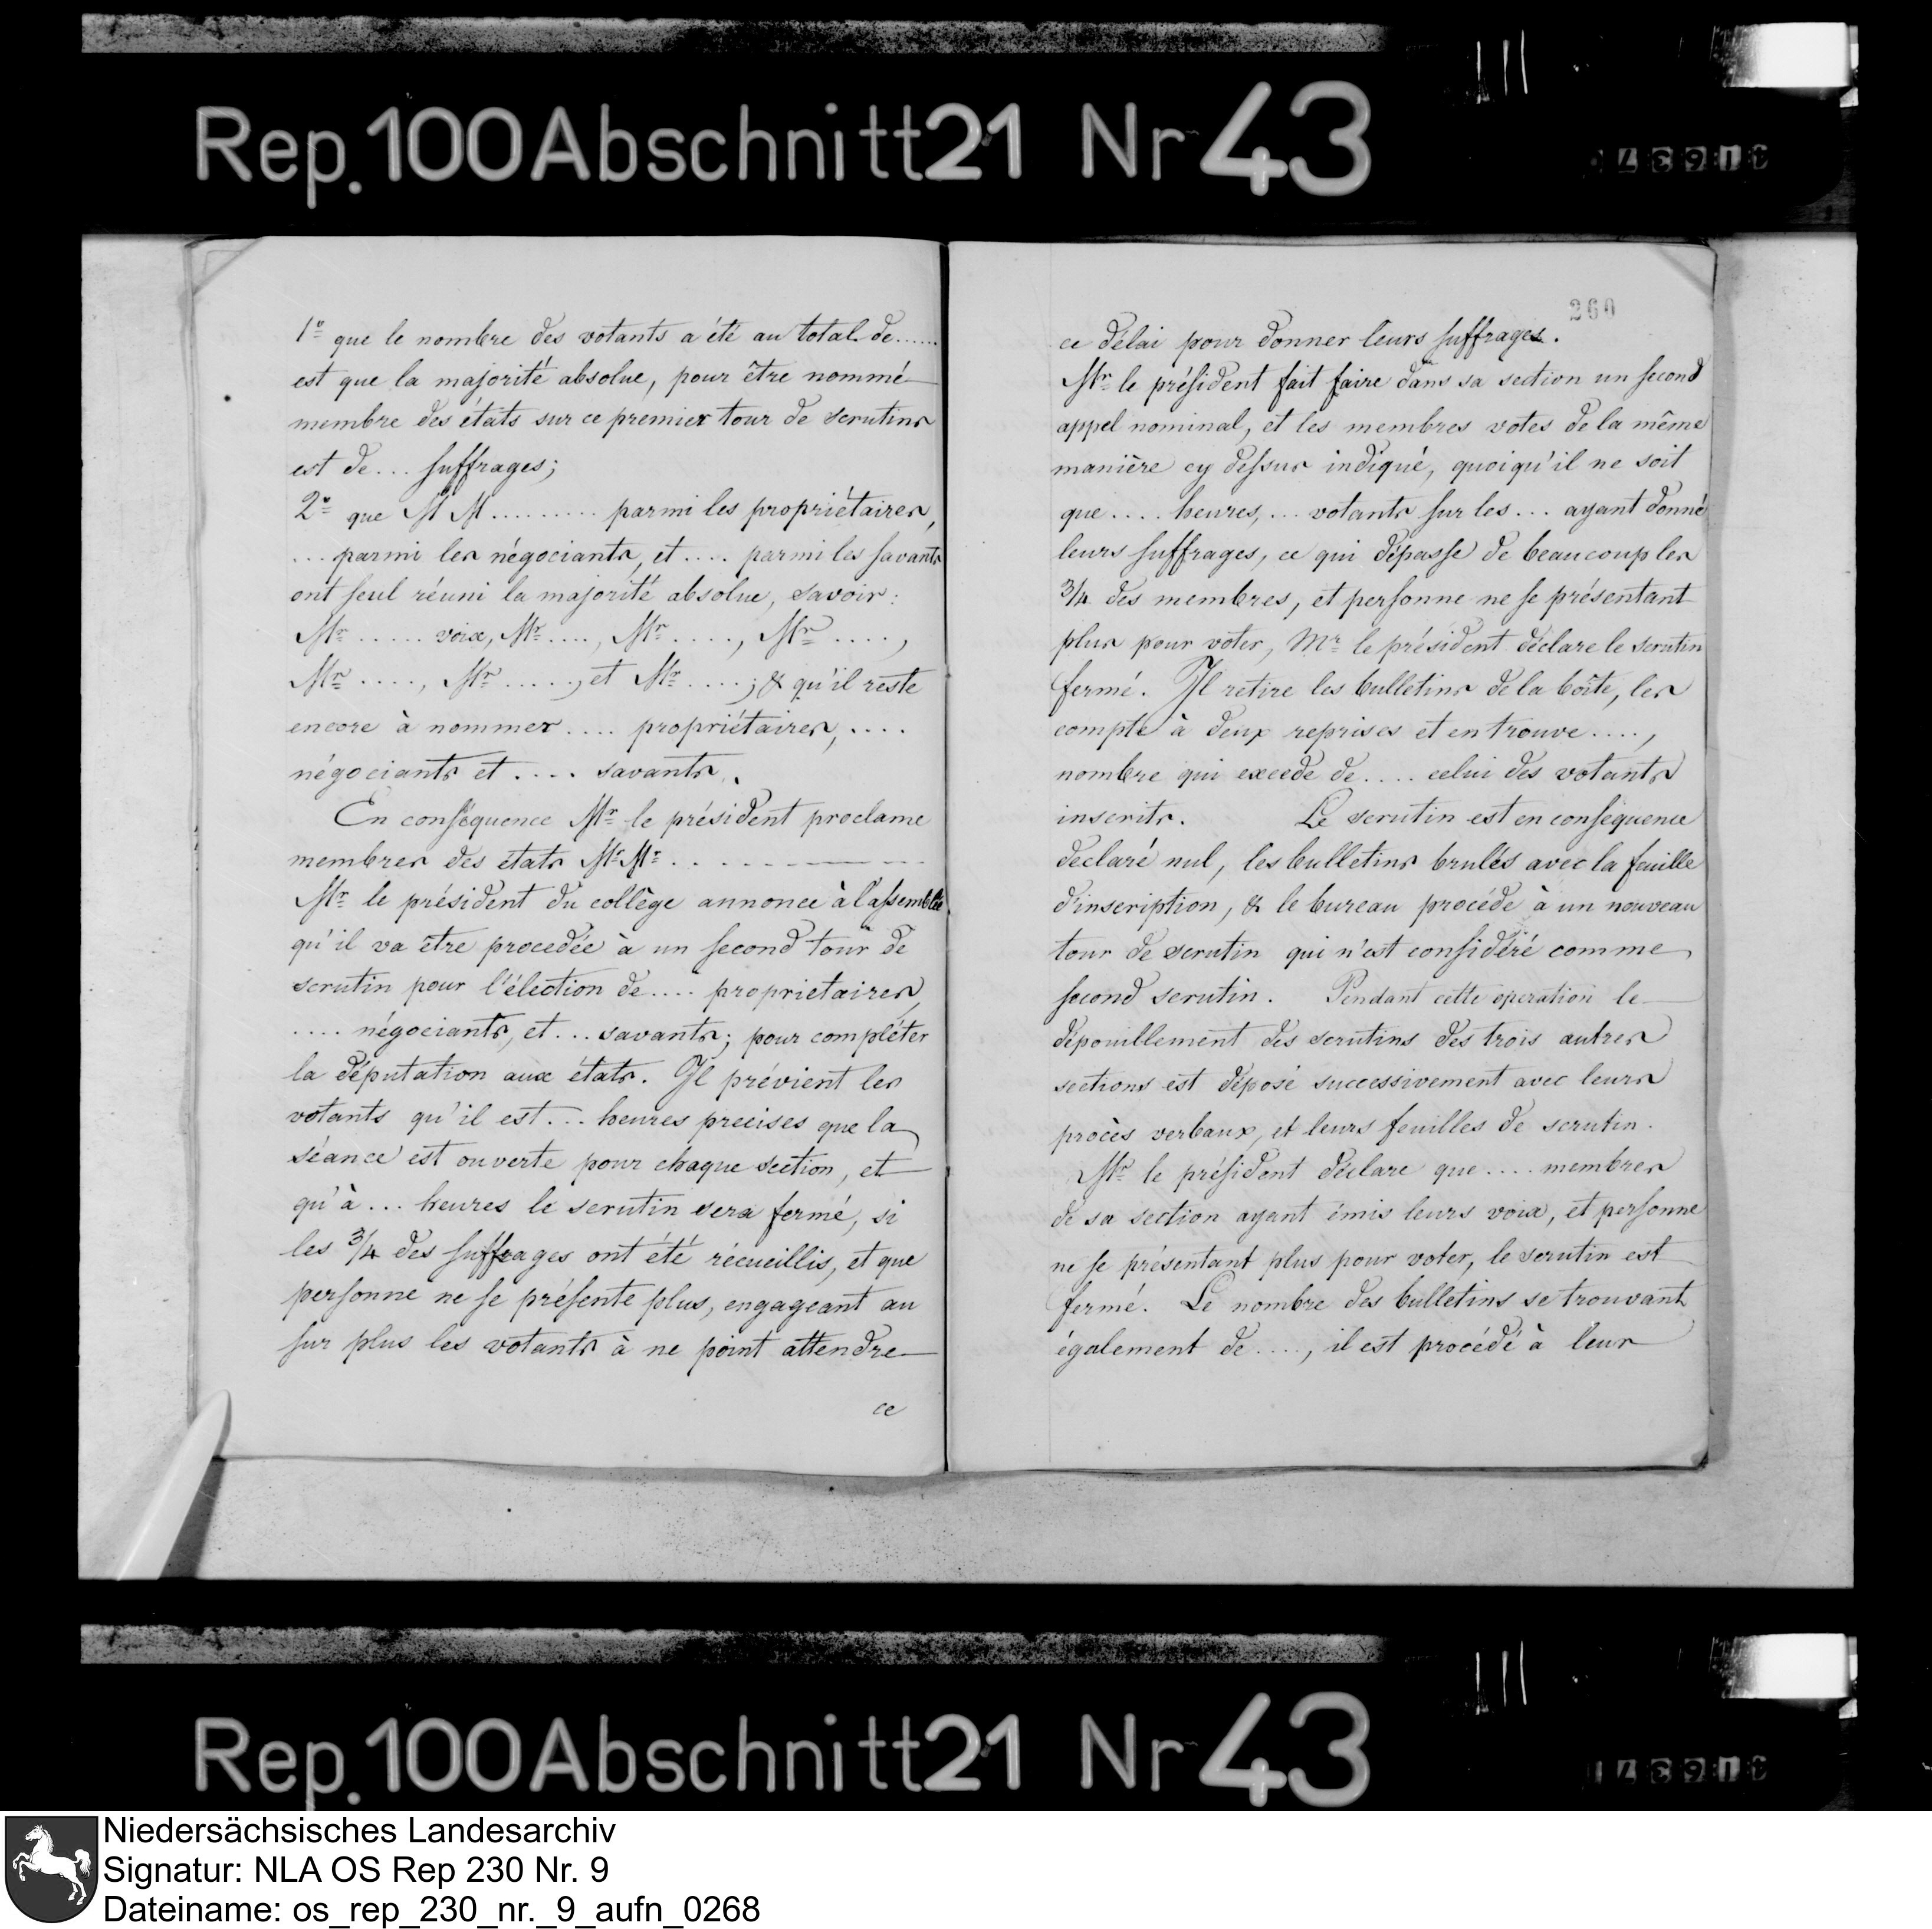 Rep. 100 Abschnitt 21 Nr 43
1º que le nombre des votants a été au total de......
est que la majorité absolue, pour être nommé
membre des états sur ce premier tour de scrutins
est de... suffrages;
2º que M M ......... parmi les propriétaires,
... parmi les négociants, et .... parmi les savants
ont seul réuni la majorité absolue, savoir:
Mr ..... voix, Mr ...., Mr ...., Mr ....,
Mr ...., Mr ....., et Mr ....; & qu'il reste
encore à nommer .... propriétaires, ....
négociants et .... savants.
En conséquence Mr le président proclame
membres des états Mr Mr . . . . .
Mr le président du collège annonce à l'assemblée
qu'il va être procedée à un second tour de
scrutin pour l'élection de .... proprietaires,
.... négociants, et ... savants; pour compléter
la députation aux états. Il prévient les
votants qu'il est ... heures precises que la
séance est ouverte pour chaque section, et
qu'à ... heures le scrutin sera fermé, si
les 3/4 des suffrages ont été récueillis, et que
personne ne se présente plus, engageant au
sur plus les votants à ne point attendre
ce
260
ce délai pour donner leurs suffrages.
Mr le président fait faire dans sa section un second
appel nominal, et les membres votes de la même
manière cy dessus indiqué, quoiqu'il ne soit
que .... heures, ... votants sur les ... ayant donné
leurs suffrages, ce qui dépasse de beaucoup les
3/4 des membres, et personne ne se présentant
plus pour voter, Mr le président déclare le scrutin
fermé. Il retire les bulletins de la boîte, les
compte à deux reprises et en trouve ....,
nombre qui excede de .... celui des votants
inscrits. Le scrutin est en conséquence
declaré nul, les bulletins brulés avec la feuille
d'inscription, & le bureau procéde à un nouveau
tour de scrutin qui n'est considéré comme
second scrutin. Pendant cette operation le
dépouillement des scrutins des trois autres
sections est déposé successivement avec leurs
procès verbaux, et leurs feuilles de scrutin.
Mr le président déclare que .... membres
de sa section ayant émis leurs voix, et personne
ne se présentant plus pour voter, le scrutin est
fermé. Le nombre des bulletins se trouvant
également de ...., il est procédé à leur
Rep. 100 Abschnitt 21 Nr 43
Niedersächsisches Landesarchiv
Signatur: NLA OS Rep 230 Nr. 9
Dateiname: os_rep_230_nr._9_aufn_0268